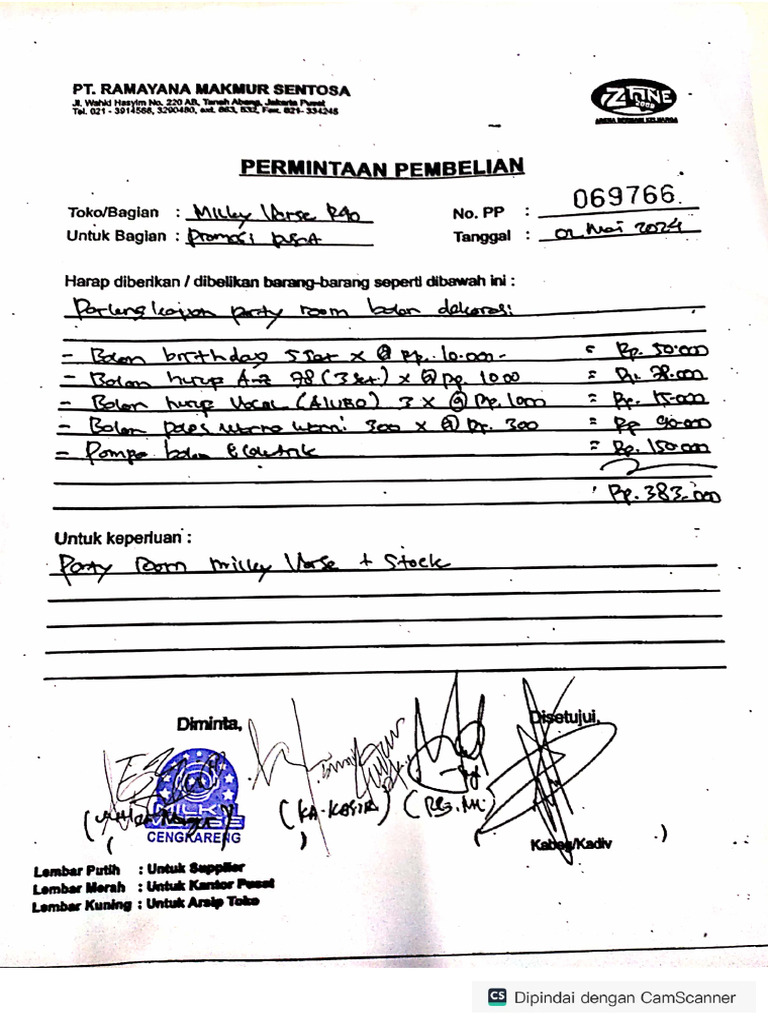 PT. RAMAYANA MAKMUR SENTOSA
Jl. Wahid Hasyim No. 220 AB, Tanah Abang, Jakarta Pusat
Tel. 021 - 3914566, 3290480, ext. 863, 832, Fax. 021- 334245
ZONE 2000
ARENA BERMAIN KELUARGA
PERMINTAAN PEMBELIAN
Toko/Bagian : Milky Verse R40
No. PP : 069766
Untuk Bagian : Promosi
Tanggal : 02 Mai 2024
Harap diberikan / dibelikan barang-barang seperti dibawah ini :
Perlengkapan party room balon dekorasi
- Balon birthday 5 set x @ Rp. 10.000- = Rp. 50.000
- Balon hurup A-Z 78 (3 set) x @ Rp. 1000 = Rp. 78.000
- Balon hurup Vocal (AIUEO) 3 x @ Rp. 1000 = Rp. 15.000
- Balon polos warna warni 300 x @ Rp. 300 = Rp 90.000
- Pompa balon Electrik = Rp. 150.000
Rp. 383.000
Untuk keperluan :
Party room milky Verse + Stock
Diminta,
Disetujui,
MILKY
CENGKARENG
(KA-KASIR)
Kabag/Kadiv
Lembar Putih : Untuk Supplier
Lembar Merah : Untuk Kantor Pusat
Lembar Kuning : Untuk Arsip Toko
CS Dipindai dengan CamScanner